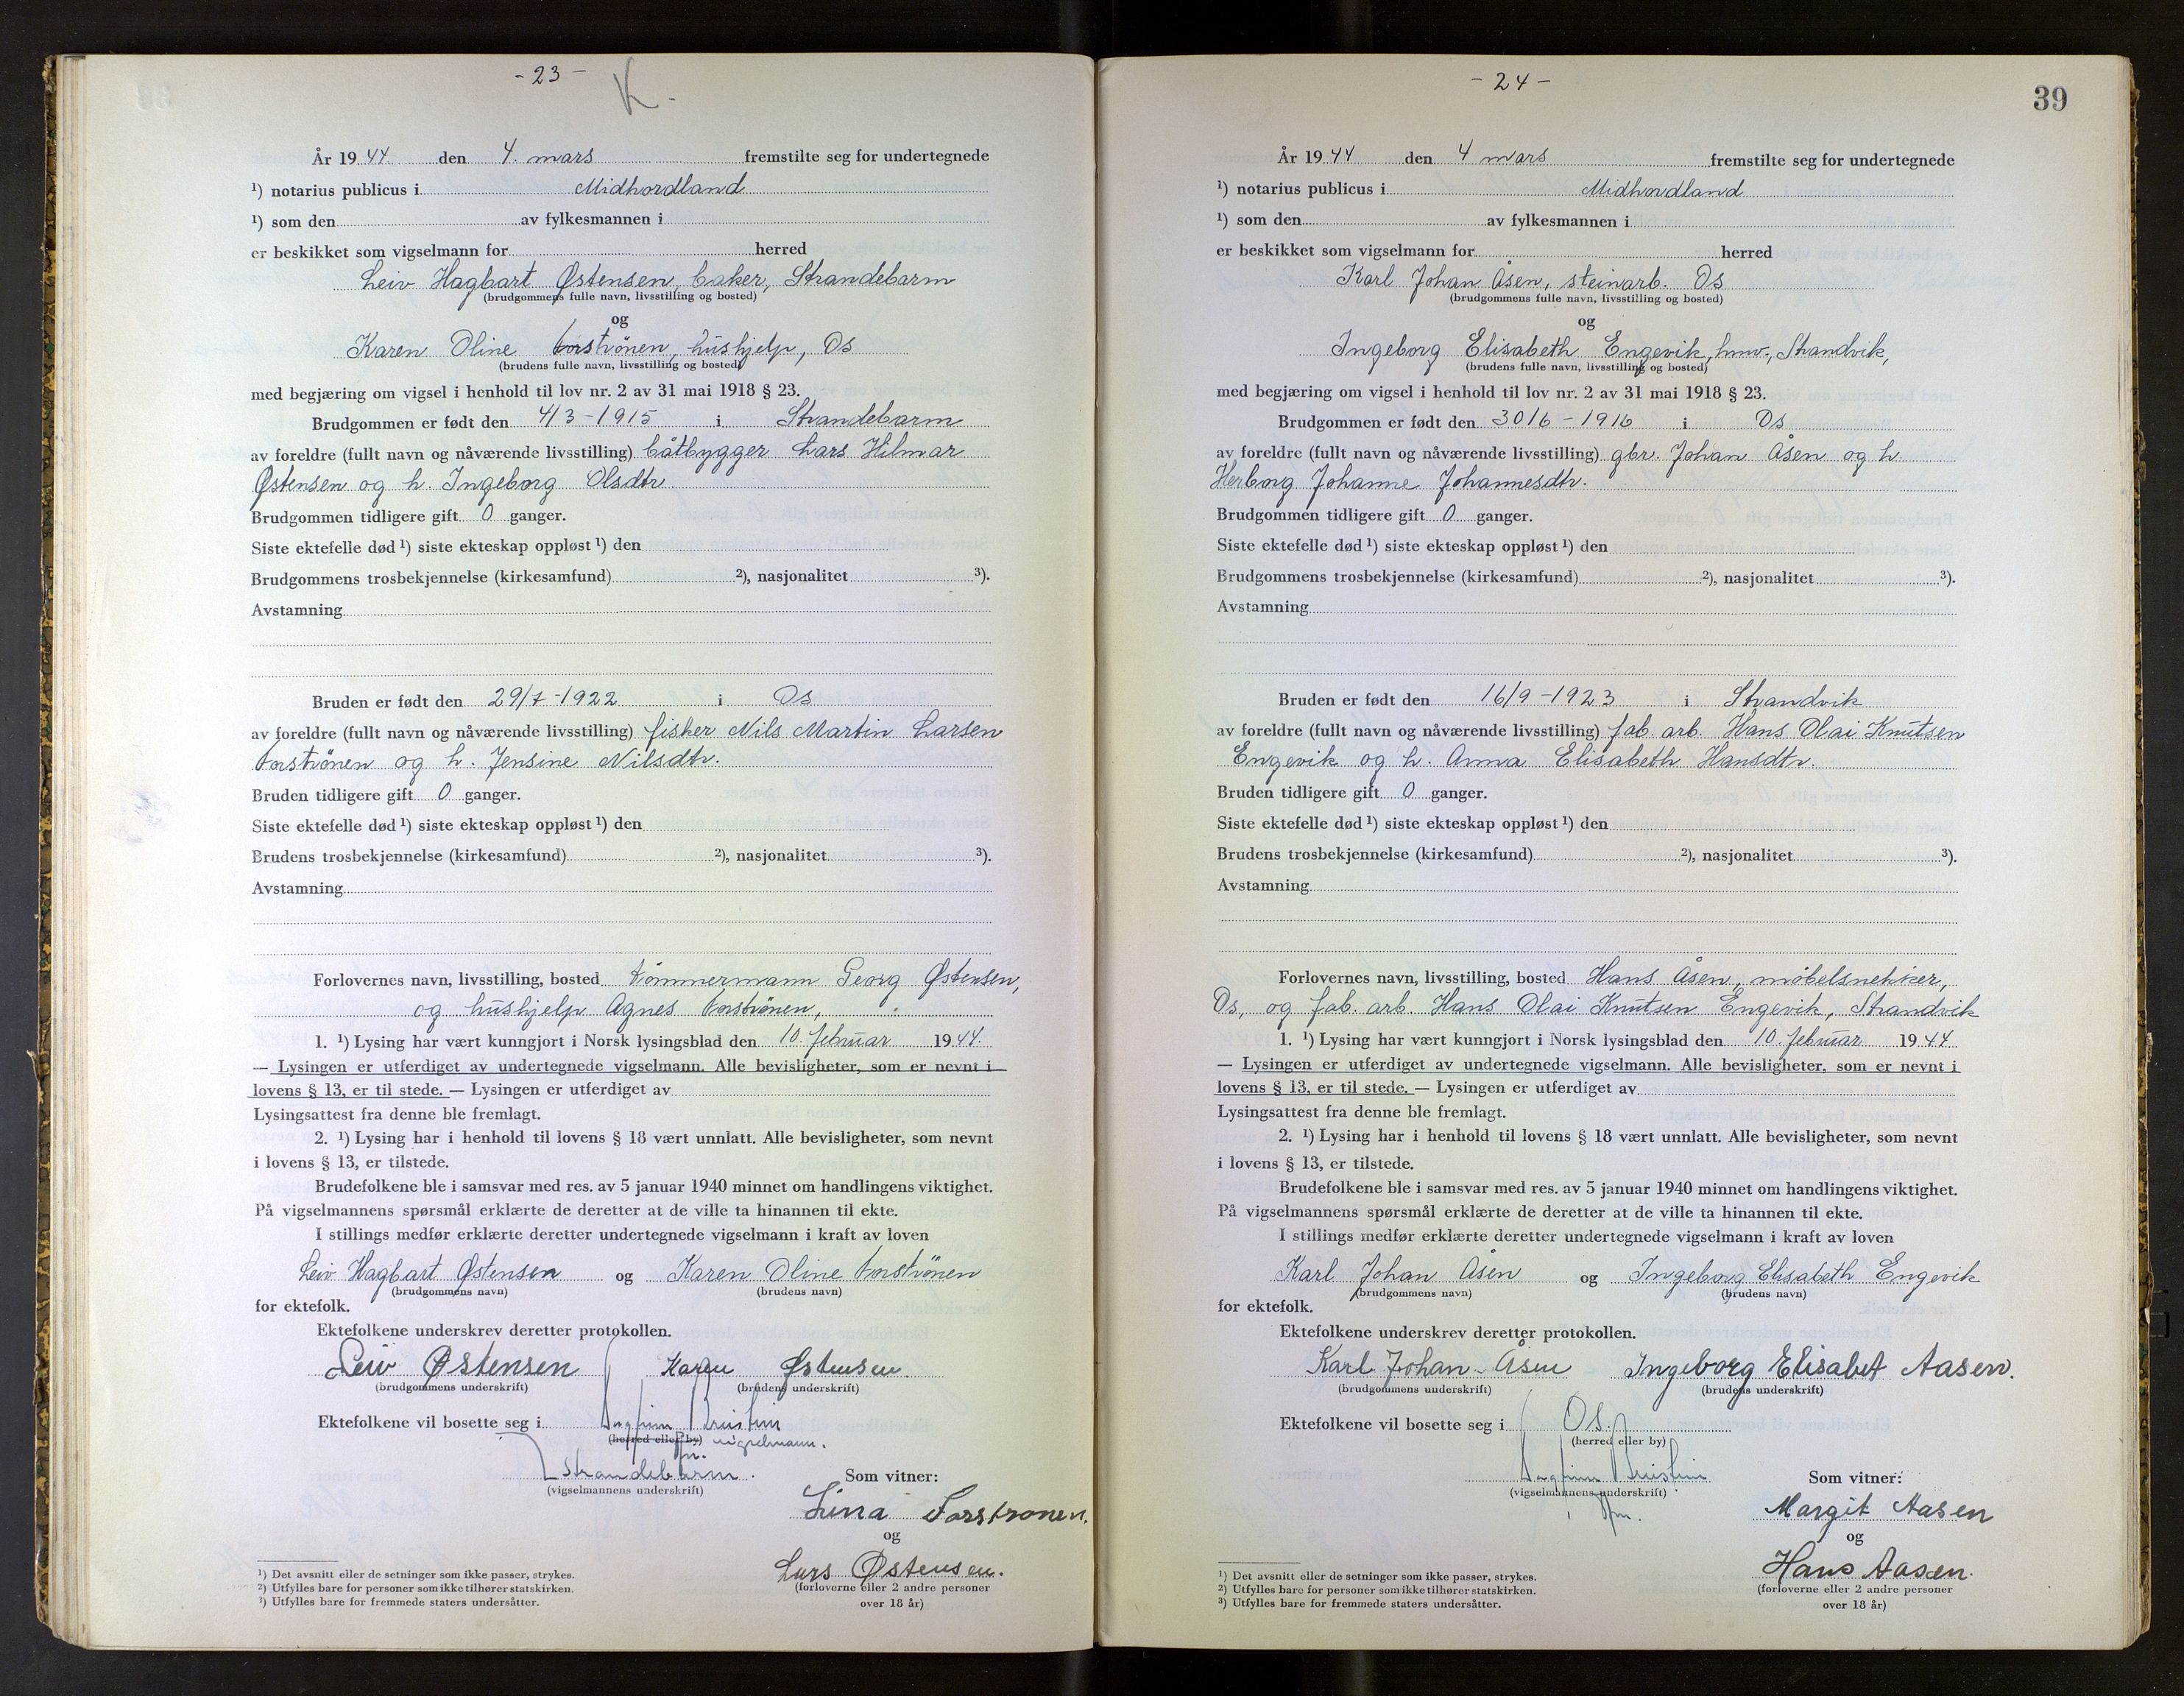 - 23 -
K.
År 19 44 den 4. mars fremstilte seg for undertegnede
¹) notarius publicus i Midhordland
¹) som den av fylkesmannen i
er beskikket som vigselmann for herred
Leiv Hagbart Østensen, baker, Strandebarm
(brudgommens fulle navn, livsstilling og bosted)
og
Karen Oline Forströnen, hushjelp, Os
(brudens fulle navn, livsstilling og bosted)
med begjæring om vigsel i henhold til lov nr. 2 av 31 mai 1918 § 23.
Brudgommen er født den 4/3 - 1915 i Strandebarm
av foreldre (fullt navn og nåværende livsstilling) båtbygger Lars Hilmar
Østensen og h. Ingeborg Olsdtr.
Brudgommen tidligere gift 0 ganger.
Siste ektefelle død ¹) siste ekteskap oppløst ¹) den
Brudgommens trosbekjennelse (kirkesamfund) ²), nasjonalitet ³).
Avstamning
Bruden er født den 29/7 - 1922 i Os
av foreldre (fullt navn og nåværende livsstilling) fisker Nils Martin Larsen
Forströnen og h. Jensine Nilsdtr.
Bruden tidligere gift 0 ganger.
Siste ektefelle død ¹) siste ekteskap oppløst ¹) den
Brudens trosbekjennelse (kirkesamfund) ²), nasjonalitet ³).
Avstamning
Forlovernes navn, livsstilling, bosted tömmermann Georg Østensen,
og hushjelp Agnes Forströnen,
1. ¹) Lysing har vært kunngjort i Norsk lysingsblad den 10. februar 19 44.
— Lysingen er utferdiget av undertegnede vigselmann. Alle bevisligheter, som er nevnt i
lovens § 13, er til stede. — Lysingen er utferdiget av
Lysingsattest fra denne ble fremlagt.
2. ¹) Lysing har i henhold til lovens § 18 vært unnlatt. Alle bevisligheter, som nevnt
i lovens § 13, er tilstede.
Brudefolkene ble i samsvar med res. av 5 januar 1940 minnet om handlingens viktighet.
På vigselmannens spørsmål erklærte de deretter at de ville ta hinannen til ekte.
I stillings medfør erklærte deretter undertegnede vigselmann i kraft av loven
Leiv Hagbart Østensen og Karen Oline Forströnen
(brudgommens navn) (brudens navn)
for ektefolk.
Ektefolkene underskrev deretter protokollen.
Leiv Østensen Karen Østensen.
(brudgommens underskrift) (brudens underskrift)
Ektefolkene vil bosette seg i
(herred eller by) vigselmann.
Strandebarm.
(vigselmannens underskrift)
Som vitner:
Lina Forstronen.
og
Lars Østensen.
(forloverne eller 2 andre personer
over 18 år)
¹) Det avsnitt eller de setninger som ikke passer, strykes.
²) Utfylles bare for personer som ikke tilhører statskirken.
³) Utfylles bare for fremmede staters undersåtter.
- 24 -
39
År 19 44 den 4 mars fremstilte seg for undertegnede
¹) notarius publicus i Midhordland
¹) som den av fylkesmannen i
er beskikket som vigselmann for herred
Karl Johan Åsen, steinarb. Os
(brudgommens fulle navn, livsstilling og bosted)
og
Ingeborg Elisabeth Engevik, hmv., Strandvik,
(brudens fulle navn, livsstilling og bosted)
med begjæring om vigsel i henhold til lov nr. 2 av 31 mai 1918 § 23.
Brudgommen er født den 30/6 - 1916 i Os
av foreldre (fullt navn og nåværende livsstilling) gbr. Johan Åsen og h
Herborg Johanne Johannesdtr.
Brudgommen tidligere gift 0 ganger.
Siste ektefelle død ¹) siste ekteskap oppløst ¹) den
Brudgommens trosbekjennelse (kirkesamfund) ²), nasjonalitet ³).
Avstamning
Bruden er født den 16/9 - 1923 i Strandvik
av foreldre (fullt navn og nåværende livsstilling) fab. arb. Hans Olai Knutsen
Engevik og h. Anna Elisabeth Hansdtr.
Bruden tidligere gift 0 ganger.
Siste ektefelle død ¹) siste ekteskap oppløst ¹) den
Brudens trosbekjennelse (kirkesamfund) ²), nasjonalitet ³).
Avstamning
Forlovernes navn, livsstilling, bosted Hans Åsen, møbelsnekker,
Os, og fab. arb. Hans Olai Knutsen Engevik, Strandvik
1. ¹) Lysing har vært kunngjort i Norsk lysingsblad den 10. februar 19 44
— Lysingen er utferdiget av undertegnede vigselmann. Alle bevisligheter, som er nevnt i
lovens § 13, er til stede. — Lysingen er utferdiget av
Lysingsattest fra denne ble fremlagt.
2. ¹) Lysing har i henhold til lovens § 18 vært unnlatt. Alle bevisligheter, som nevnt
i lovens § 13, er tilstede.
Brudefolkene ble i samsvar med res. av 5 januar 1940 minnet om handlingens viktighet.
På vigselmannens spørsmål erklærte de deretter at de ville ta hinannen til ekte.
I stillings medfør erklærte deretter undertegnede vigselmann i kraft av loven
Karl Johan Åsen og Ingeborg Elisabeth Engevik
(brudgommens navn) (brudens navn)
for ektefolk.
Ektefolkene underskrev deretter protokollen.
Karl Johan Åsen Ingeborg Elisabet Aasen.
(brudgommens underskrift) (brudens underskrift)
Ektefolkene vil bosette seg i Os.
(herred eller by)
(vigselmannens underskrift)
Som vitner:
Margit Aasen
og
Hans Aasen.
(forloverne eller 2 andre personer
over 18 år)
¹) Det avsnitt eller de setninger som ikke passer, strykes.
²) Utfylles bare for personer som ikke tilhører statskirken.
³) Utfylles bare for fremmede staters undersåtter.